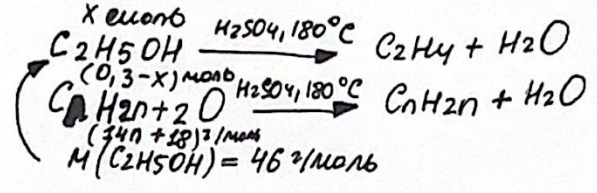 X моль
C2H5OH H2SO4, 180°C C2H4 + H2O
(0,3-x) моль
CnH2n+2O H2SO4, 180°C CnH2n + H2O
(14n + 18) г/моль
M(C2H5OH) = 46 г/моль